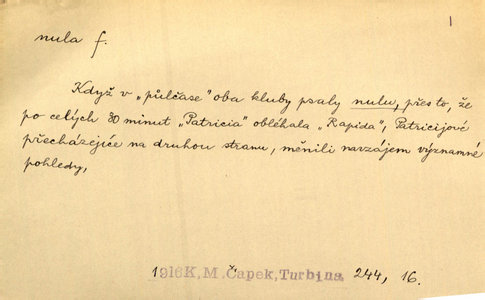 1
nula f.
Když v „půlčase" oba kluby psaly nulu, přes to, že
po celých 30 minut „Patricia" obléhala „Rapida", Patricijové
přecházejíce na druhou stranu, měnili navzájem významné
pohledy,
1916 K. M. Čapek, Turbina 244, 16.